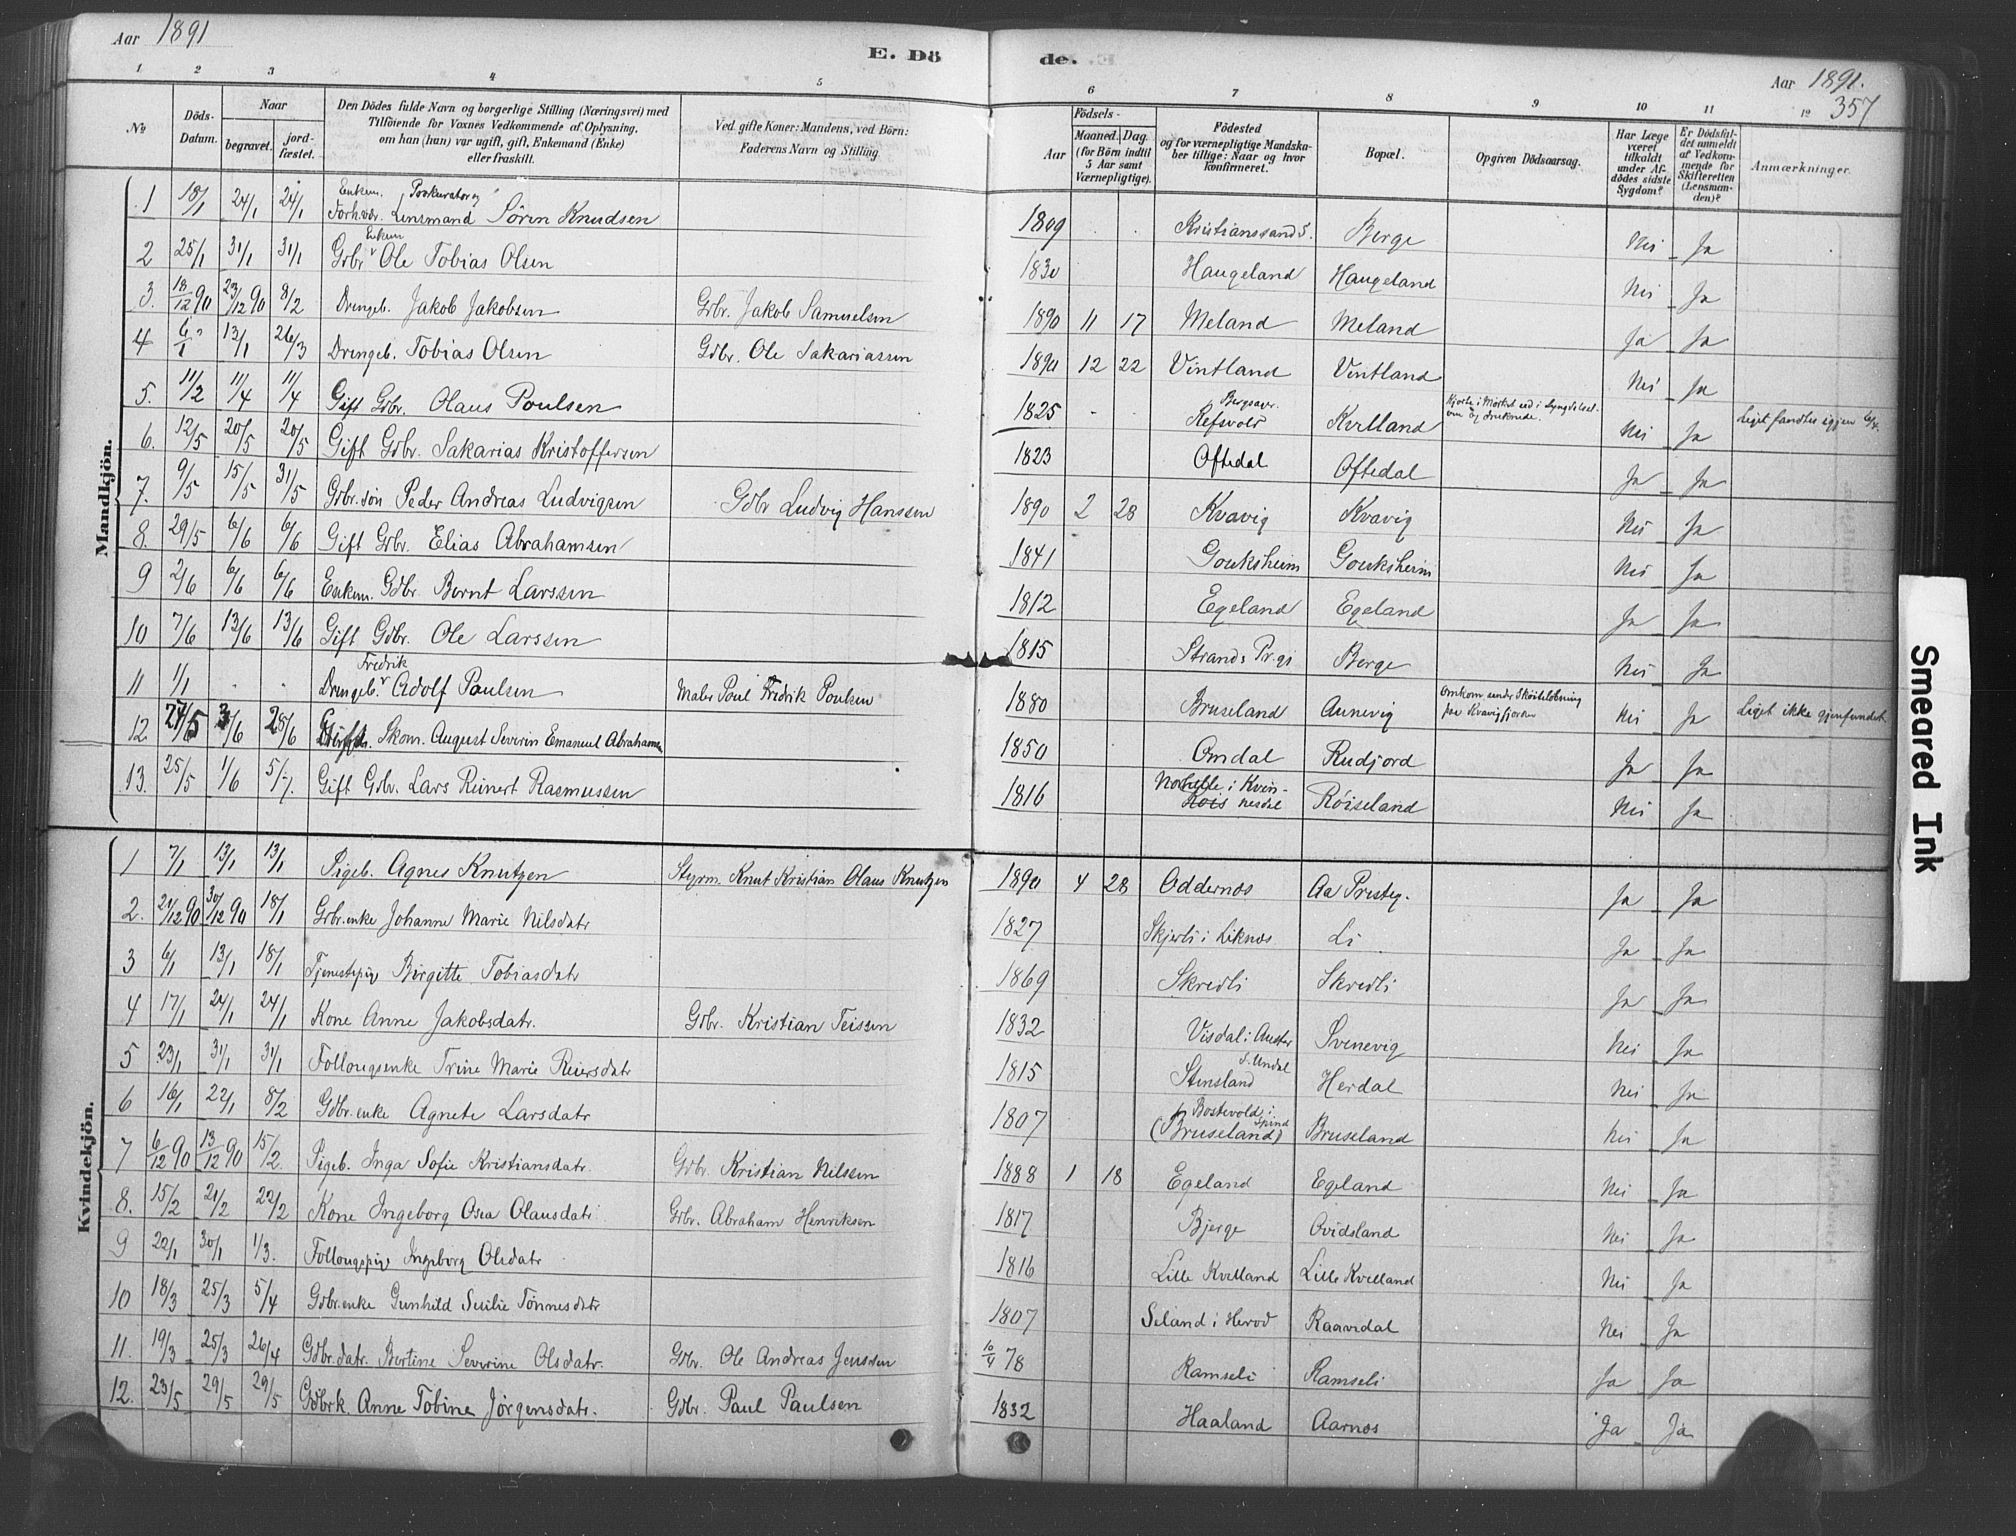 Aar 1891
E. Dö
de.
Aar 1891.
357
1 2 3 4 5 6 7 8 9 10 11 12
No
Döds-Datum.
Naar
begravet.
jord-fæstet.
Den Dödes fulde Navn og borgerlige Stilling (Næringsvei) med
Tilföiende for Voxnes Vedkommende af Oplysning,
om han (hun) var ugift, gift, Enkemand (Enke)
eller fraskilt.
Ved gifte Koner: Mandens, ved Börn:
Faderens Navn og Stilling
Födsels-
Aar
Maaned. Dag.
(for Börn indtil
5 Aar samt
Værnepligtige).
Födested
og for værnepligtige Mandska-
ber tillige: Naar og hvor
konfirmeret.
Bopæl.
Opgiven Dödsaarsag.
Har Læge
været
tilkaldt
under Af-
dödes sidste
Sygdom?
Er Dödsfal-
det anmeldt
af Vedkom-
mende for
Skifteretten
(Lensman-
den)?
Anmærkninger.
Mandkjön.
1 18/1 24/1 24/1 Enkem. Prokurator og Forhv. Lensmand Sören Knudsen 1809 Kristianssand S. Berge Nei Ja
2 25/1 31/1 31/1 Gdbr. Enkem Ole Tobias Olsen 1830 Haugeland Haugeland Nei Ja
3. 18/12 90 23/12 90 8/2 Drengeb. Jakob Jakobsen Gdbr. Jakob Samuelsen 1890 11 17 Meland Meland Ja Ja
4 6/1 13/1 26/3 Drengeb. Tobias Olsen Gdbr. Ole Sakariassen 1890 12 22 Vintland Vintland Nei Ja
5. 11/2 11/4 11/4 Gift Gdbr. Olaus Poulsen 1825 Refsvold Kvelland Kjørte i Mørket ud i og druknede. Nei Ja Liget fandtes igjen 6/4.
6. 12/5 20/5 20/5 Gift Gdbr. Sakarias Kristoffersen 1823 Oftedal Oftedal Ja Ja
7. 9/5 15/5 31/5 Gdbr.søn Peder Andreas Ludvigsen Gdbr Ludvig Hanssen 1890 2 28 Kvavig Kvavig Nei Ja
8. 29/5 6/6 6/6 Gift Gdbr. Elias Abrahamsen 1841 Gouksheim Gouksheim Nei Ja
9 2/6 6/6 6/6 Enkem. Gdbr. Bernt Larssen 1812 Egeland Egeland Ja Ja
10 7/6 13/6 13/6 Gift Gdbr. Ole Larssen 1815 Strands Pr.gj Berge Nei Ja
11 1/1 Drengeb. Fredrik Adolf Paulsen Maler Poul Fredrik Poulsen 1880 Bruseland Aunevig Omkom under Skøiteløbning paa Kvavigfjorden Nei Ja Liget ikke gjenfundet.
12 27/5 3/6 28/6 Skom. August Severin Emanuel Abrahamsen 1850 Omdal Rudjord Ja Ja
13. 25/5 1/6 5/7. Gift Gdbr. Lars Reinert Rasmussen 1816 i Kvinnesdal Røiseland Nei Ja
Kvindekjön.
1 7/1 13/1 13/1 Pigeb. Agnes Knutzen Styrm. Knut Kristian Olaus Knutzen 1890 4 28 Oddernes Aa Presteg. Ja Ja
2. 21/12 90 30/12 90 18/1 Gdbr.enke Johanne Marie Nilsdatr 1827 Skjerli i Liknes Li Ja Ja
3 6/1 13/1 18/1 Tjenestepige Birgitte Tobiasdatr 1869 Skredli Skredli Ja Ja
4 17/1 24/1 24/1 Kone Anne Jakobsdatr. Gdbr. Kristian Teissen 1832 Visdal i Auster Svenevig Nei Ja
5 23/1 31/1 31/1 Follougsenke Trine Marie Reiersdatr 1815 Stensland S. Undal Herdal Nei Ja
6 16/1 22/1 8/2 Gdbr.enke Agnete Larsdatr 1807 Bostevold i Spind (Bruseland) Bruseland Nei Ja
7 6/12 90 13/12 90 15/2. Pigeb. Inga Sofie Kristiansdatr. Gdbr. Kristian Nilssen 1888 1 18 Egeland Egeland Nei Ja
8. 15/2 21/2 22/2 Kone Ingeborg Osea Olausdatr Gdbr. Abraham Henriksen 1817 Bjerge Ovidsland Nei Ja
9 22/1 30/1 1/3. Follougspige Ingeborg Olsdatr 1816 Lille Kvelland Lille Kvelland Nei Ja
10 18/3 25/3 5/4 Gdbr.enke Gunhild Tønnesdatr 1807 Seland i Herod Raavdal Nei Ja
11. 19/3 25/3 26/4 Gdbr.datr. Bertine Severine Olsdatr. Gdbr. Ole Andreas Jenssen 10/4 78 Ramseli Ramseli Ja Ja
12. 23/5 29/5 29/5 Gdbrk. Anne Tobine Jørgensdatr. Gdbr. Paul Paulsen 1832 Haaland Aarnes Ja Ja
Smeared Ink